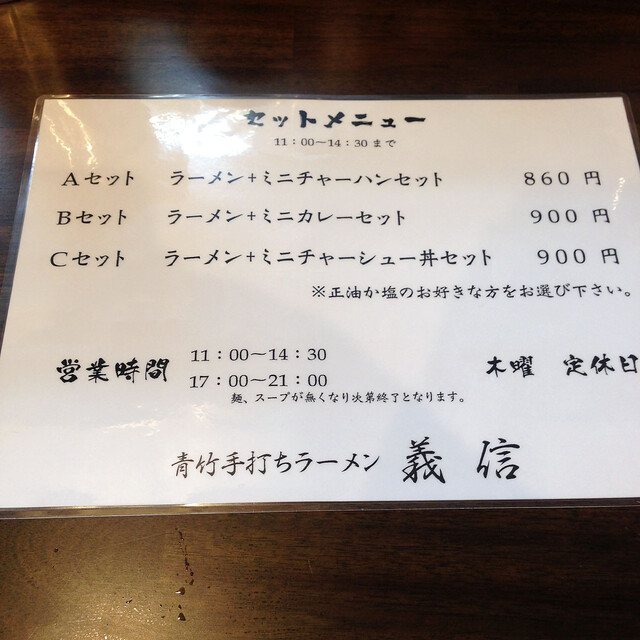 セットメニュー
11：00～14：30まで
Aセット ラーメン+ミニチャーハンセット 860円
Bセット ラーメン+ミニカレーセット 900円
Cセット ラーメン+ミニチャーシュー丼セット 900円
※正油か塩のお好きな方をお選び下さい。
営業時間 11：00～14：30 木曜 定休日
17：00～21：00
麺、スープが無くなり次第終了となります。
青竹手打ちラーメン 義信